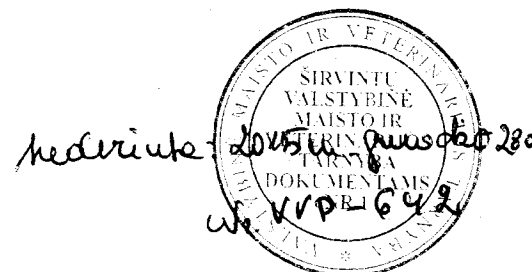 VALSTYBINĖ MAISTO IR VETERINARIJOS TARNYBA
ŠIRVINTŲ
VALSTYBINĖ
MAISTO IR
VETERINARIJOS
TARNYBA
DOKUMENTAMS
NR. 1
2015 m. gruodžio 28d
Nr. VVP-642